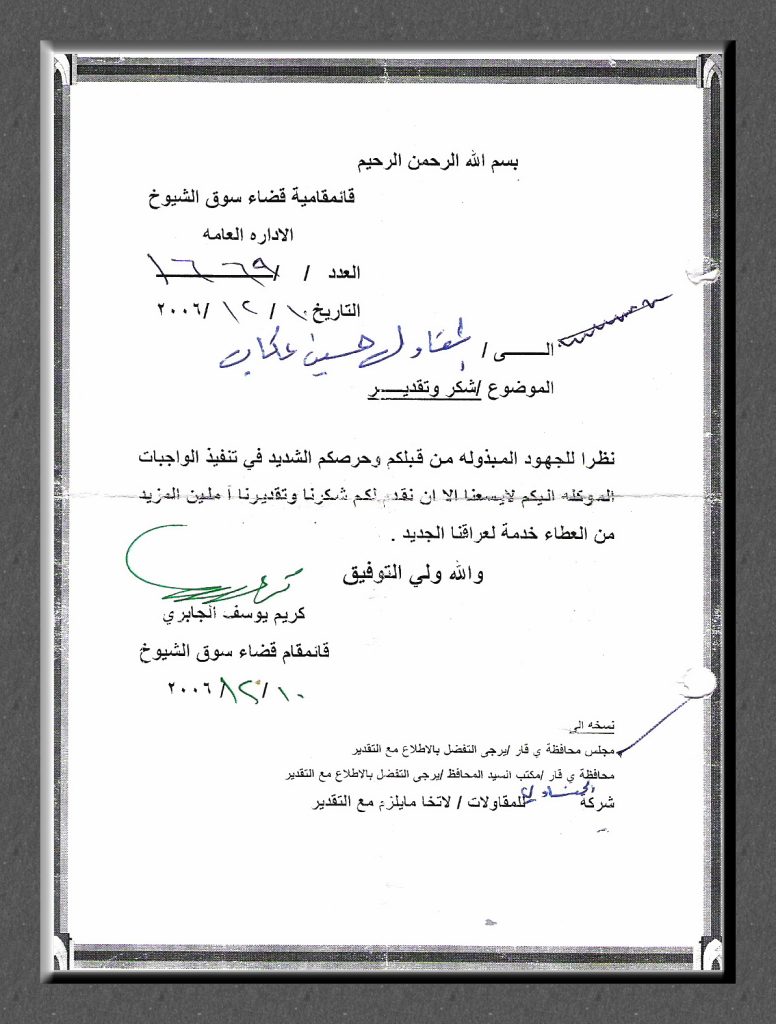 بسم الله الرحمن الرحيم
قائمقامية قضاء سوق الشيوخ
الاداره العامه
العدد / ١٦٦٩/
التاريخ ١٠ / ١٢ /٢٠٠٦
الــــى / المقاول حسين عكاب
الموضوع /شكر وتقديــــر
نظرا للجهود المبذوله من قبلكم وحرصكم الشديد في تنفيذ الواجبات
الموكله اليكم لايسعنا الا ان نقدم لكم شكرنا وتقديرنا آ ملين المزيد
من العطاء خدمة لعراقنا الجديد .
والله ولي التوفيق
كريم يوسف الجابري
قائمقام قضاء سوق الشيوخ
١٠ /١٢/ ٢٠٠٦
نسخه الى
مجلس محافظة ي قار /يرجى التفضل بالاطلاع مع التقدير
محافظة ي قار /مكتب السيد المحافظ /يرجى التفضل بالاطلاع مع التقدير
شركة للمقاولات / لاتخا مايلزم مع التقدير